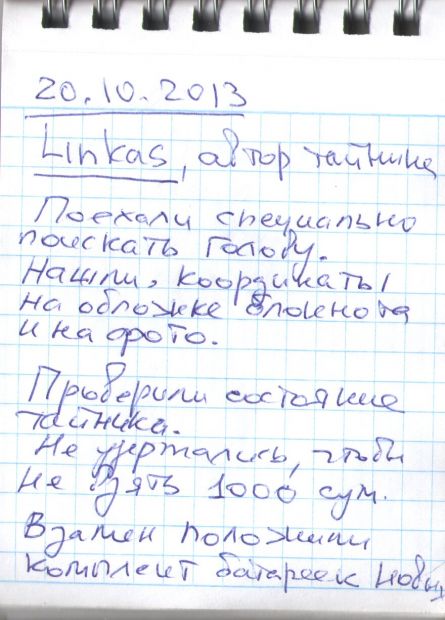 20.10.2013
Linkas, автор тайника
Поехали специально
поискать Голову.
Нашли, координаты
на обложке блокнота
и на фото.
Проверили состояние
тайника.
Не удержались, чтобы
не взять 1000 сум.
Взамен положили
комплект батареек новых